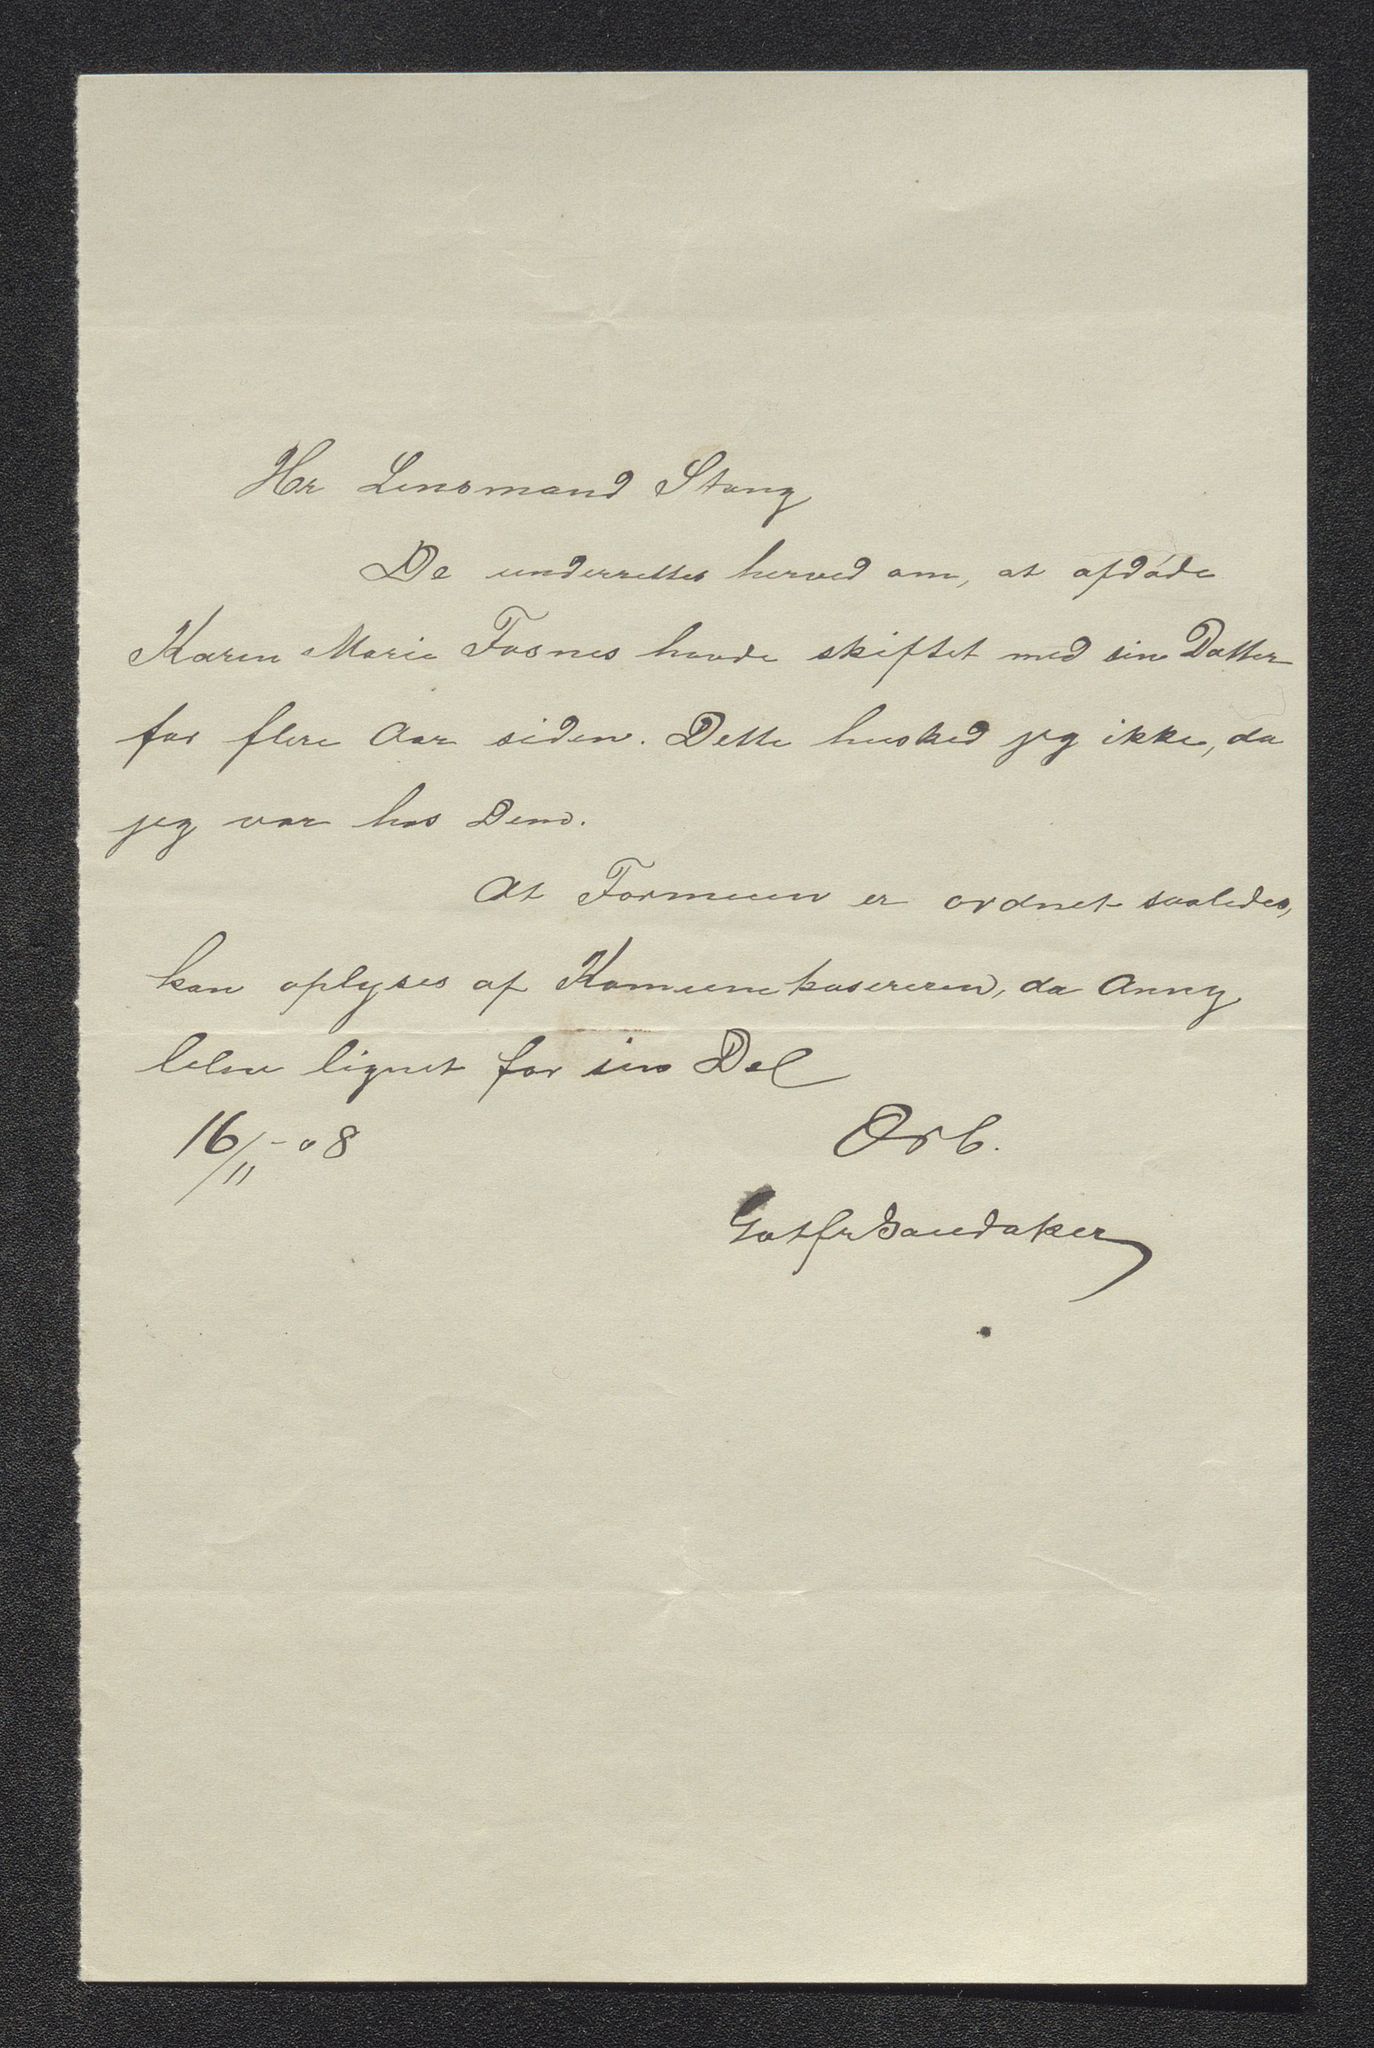 Hr Lensmand Stang
De underrettes herved om, at afdøde
Karen Marie Fosnes havde skiftet med sin Datter
for flere Aar siden. Dette husked jeg ikke, da
jeg var hos Dem.
At Formuen er ordnet saaledes,
kan oplyses af Komunekasereren, da Anny
lignet for sin Del
16/11-08
Ørb.
Gotfr Sandaker